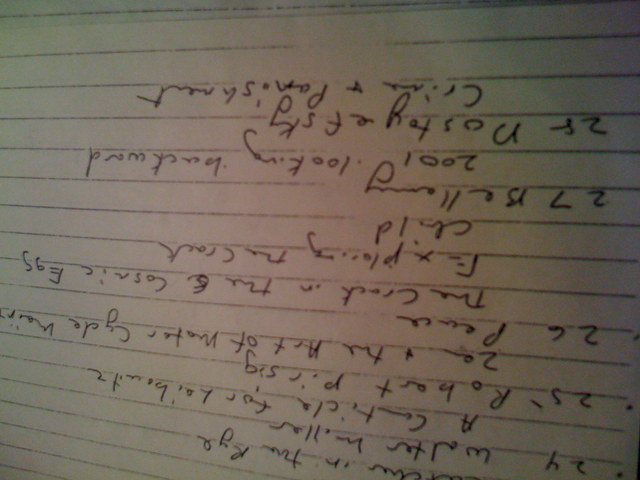 in the Rye
24 Walter Miller
A Canticle for Leibowitz
25 Robert Pirsig
Zen + the Art of Motor Cycle
26 Pearce
The Crack in the Cosmic Egg
Exploring the Crack
Child
27 Bellamy
2001 looking backward
28 Dostoyefsky
Crime + Punishment